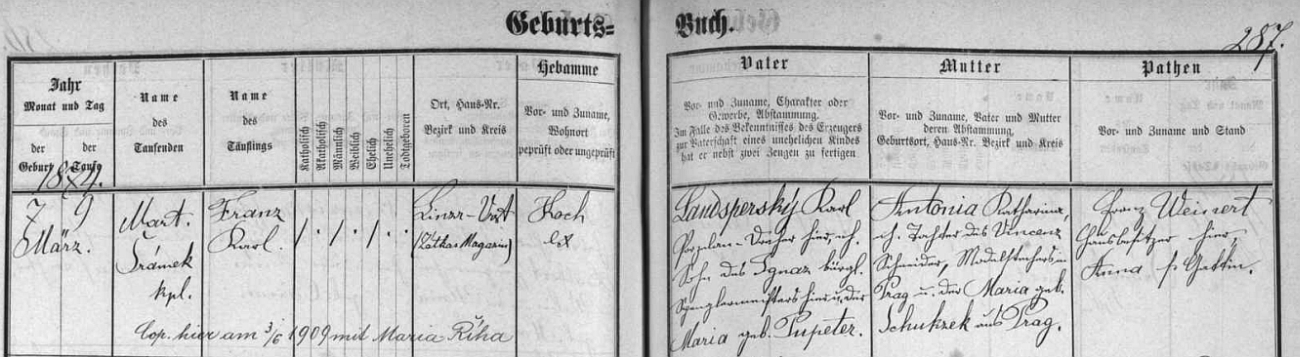 Geburts=
Buch.
287.
Jahr
Monat und Tag
der der
Geburt Taufe
1879.
Name
des
Taufenden
Name
des
Täuflings
Katholisch
Akatholisch
Männlich
Weiblich
Ehelich
Unehelich
Todtgeboren
Ort, Haus-Nr.
Bezirk und Kreis
Hebamme
Vor- und Zuname,
Wohnort
geprüft oder ungeprüft
Vater
Vor- und Zuname, Charakter oder
Gewerbe, Abstammung.
Im Falle des Bekenntnisses des Erzeugers
zur Vaterschaft eines unehelichen Kindes
hat er nebst zwei Zeugen zu fertigen
Mutter
Vor- und Zuname, Vater und Mutter
deren Abstammung,
Geburtsort, Haus-Nr. Bezirk und Kreis
Pathen
Vor- und Zuname und Stand
7 9
März.
Mart.
Šrámek
kpl.
Franz
Karl.
/ . / . / . .
Linzr-Vrst
Magazin)
Koch
Landspersky Karl
Porzelan-Dreher hier, eh.
Sohn des Ignaz bürgl.
Spenglermeisters hier u. der
Maria geb. Pupeter.
Antonia Katharina,
eh. Tochter des Vincenz
Schneider, Modelstechers in
Prag u. der Maria geb.
aus Prag.
Franz Weinert
Hausbesitzer hier,
Anna s. Gattin.
Cop. hier am 3/6 1909 mit Maria Říha